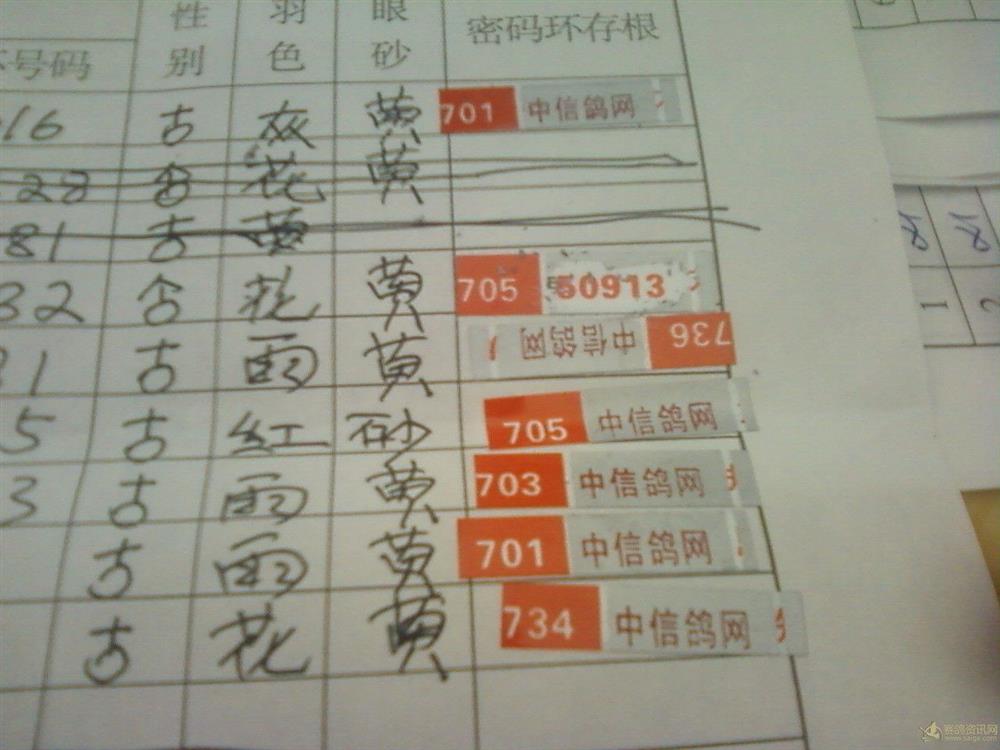 性别 羽色 眼砂 密码环存根
号码
16 古 灰 黄 701 中信鸽网
28 古 花 黄
81 古 黄
32 古 花 黄 705 50913
1 古 雨 黄 736 中信鸽网
5 古 红 砂 705 中信鸽网
3 古 雨 黄 703 中信鸽网
古 雨 黄 701 中信鸽网
古 花 黄 734 中信鸽网
1
2
赛鸽资讯网
www.saige.com